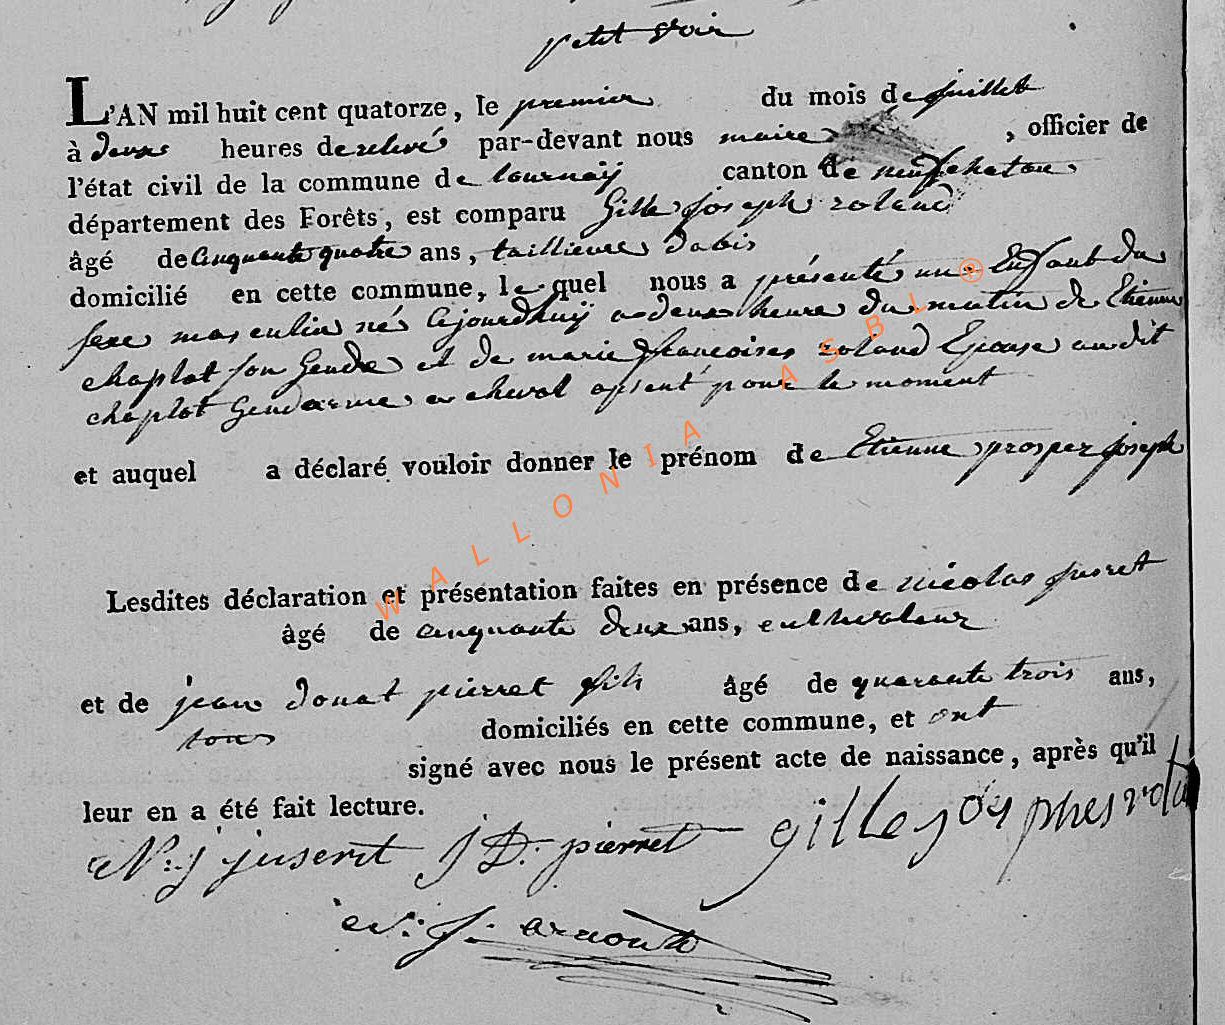 petit voir
L'AN mil huit cent quatorze, le premier du mois de juillet
à deux heures de relevé par-devant nous maire , officier de
l'état civil de la commune de tournaÿ canton de neufchateau
département des Forêts, est comparu Gille joseph roland
âgé de Cinquante quatre ans, taillieure dabis
domicilié en cette commune, lequel nous a présenté un Enfant du
sexe masculin né Cejourdhuÿ a deux heure du matin de Etienne
chaplot son Gendre et de marie francoises roland Epouse audit
chaplot Gendarme a cheval absent pour le moment
et auquel a déclaré vouloir donner le prénom de Etienne prosper joseph
Lesdites déclaration et présentation faites en présence de nicolas
âgé de cinquante deux ans, cultivateur
et de jean donat pierret fils âgé de quarante trois ans,
tous domiciliés en cette commune, et ont
signé avec nous le présent acte de naissance, après qu'il
leur en a été fait lecture.
N: j juseret J D: pierret gille joseph
N: J:
WALLONIA ASBL ®